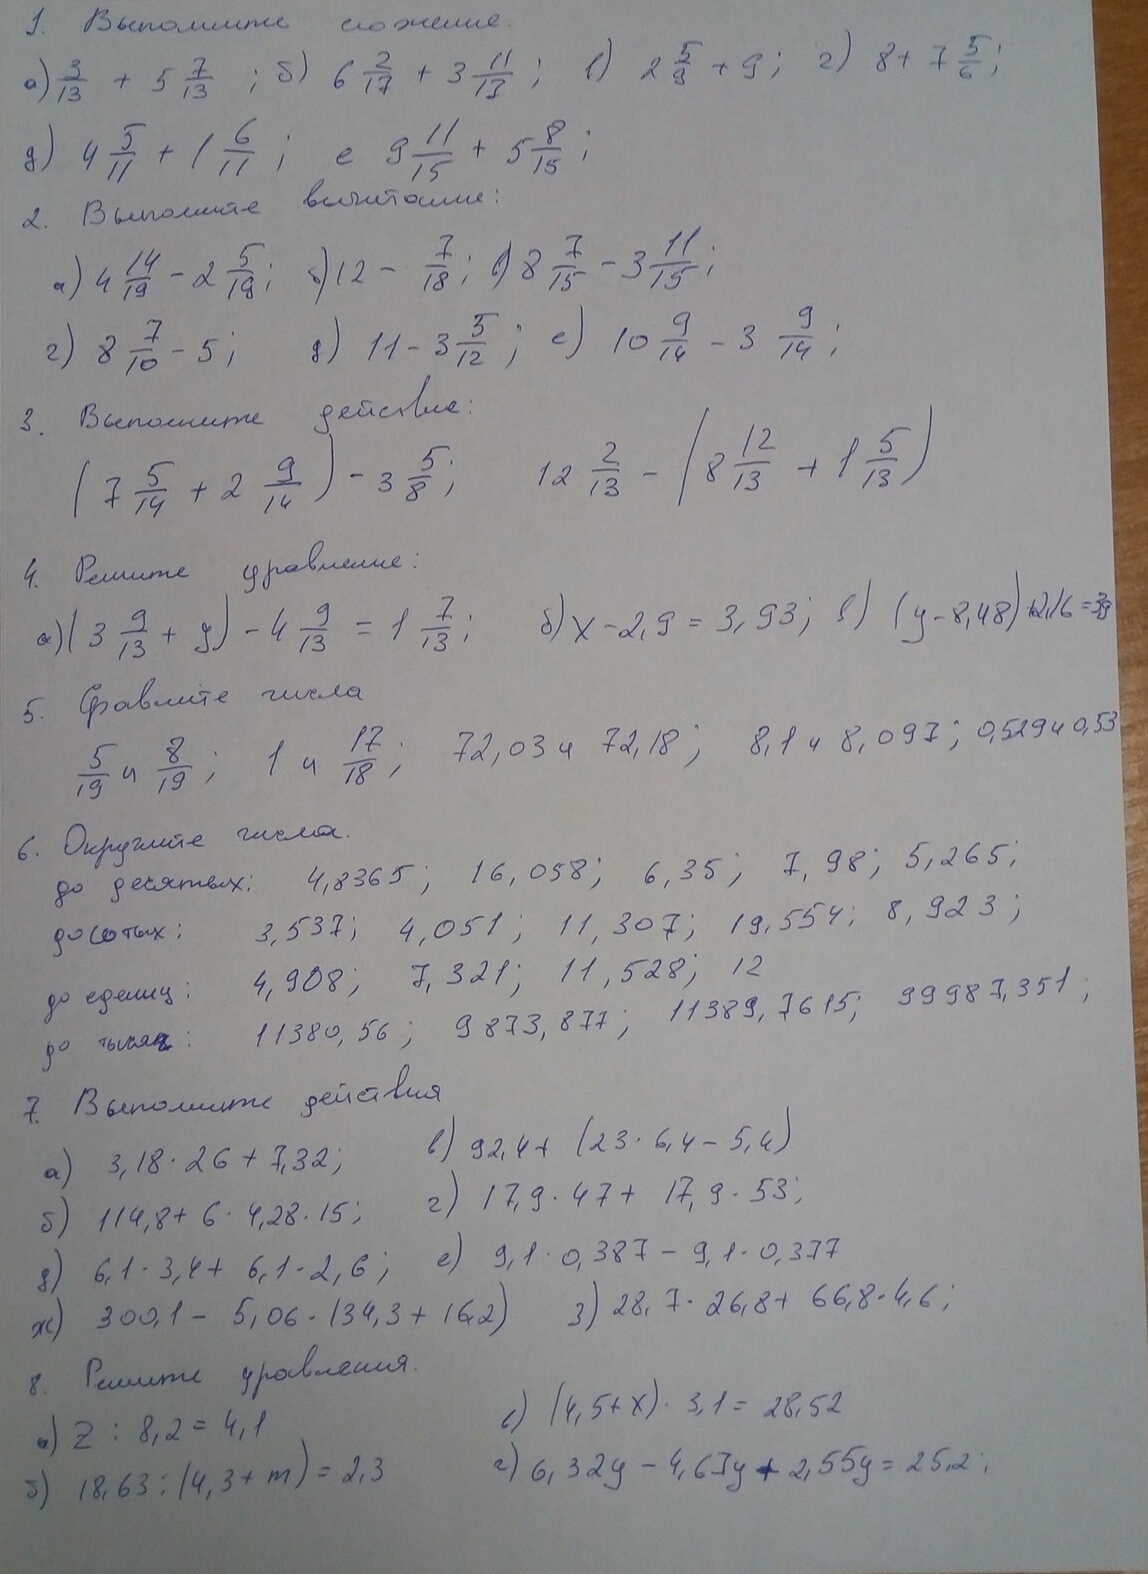 1. Выполните сложение.
а) 3/13 + 5 7/13 ; б) 6 2/17 + 3 11/17 ; в) 2 5/9 + 9 ; г) 8 + 7 5/6 ;
д) 4 5/11 + 1 6/11 ; е 9 11/15 + 5 8/15 ;
2. Выполните вычитание:
а) 4 14/19 - 2 5/19 ; б) 12 - 7/18 ; в) 8 7/15 - 3 11/15 ;
г) 8 7/10 - 5 ; д) 11 - 3 5/12 ; е) 10 9/14 - 3 9/14 ;
3. Выполните действие:
(7 5/14 + 2 9/14) - 3 5/8 ; 12 2/13 - (8 12/13 + 1 5/13)
4. Решите уравнение:
а) (3 9/13 + y) - 4 9/13 = 1 7/13 ; б) x - 2,9 = 3,93; в) (y - 8,48) + 2,16 = 3,9
5. Сравните числа
5/19 и 8/19 ; 1 и 17/18 ; 72,03 и 72,18 ; 8,1 и 8,097 ; 0,529 и 0,53
6. Округлите числа.
до десятых: 4,8365 ; 16,058; 6,35 ; 7,98 ; 5,265;
до сотых : 3,537; 4,051 ; 11,307; 19,554; 8,923 ;
до единиц : 4,908; 7,321; 11,528; 12
до тысяч : 11380,56 ; 9873,877 ; 11389,7615; 99987,351 ;
7. Выполните действия
а) 3,18 · 26 + 7,32; в) 92,4 + (23 · 6,4 - 5,4)
б) 114,8 + 6 · 4,28 · 15; г) 17,9 · 47 + 17,9 · 53;
д) 6,1 · 3,4 + 6,1 · 2,6 ; е) 9,1 · 0,387 - 9,1 · 0,377
ж) 300,1 - 5,06 · (34,3 + 16,2) з) 28,7 · 26,8 + 66,8 · 4,6 ;
8. Решите уравнения.
а) z : 8,2 = 4,1 в) (4,5 + x) · 3,1 = 28,52
б) 18,63 : (4,3 + m) = 2,3 г) 6,32y - 4,67y + 2,55y = 25,2 ;